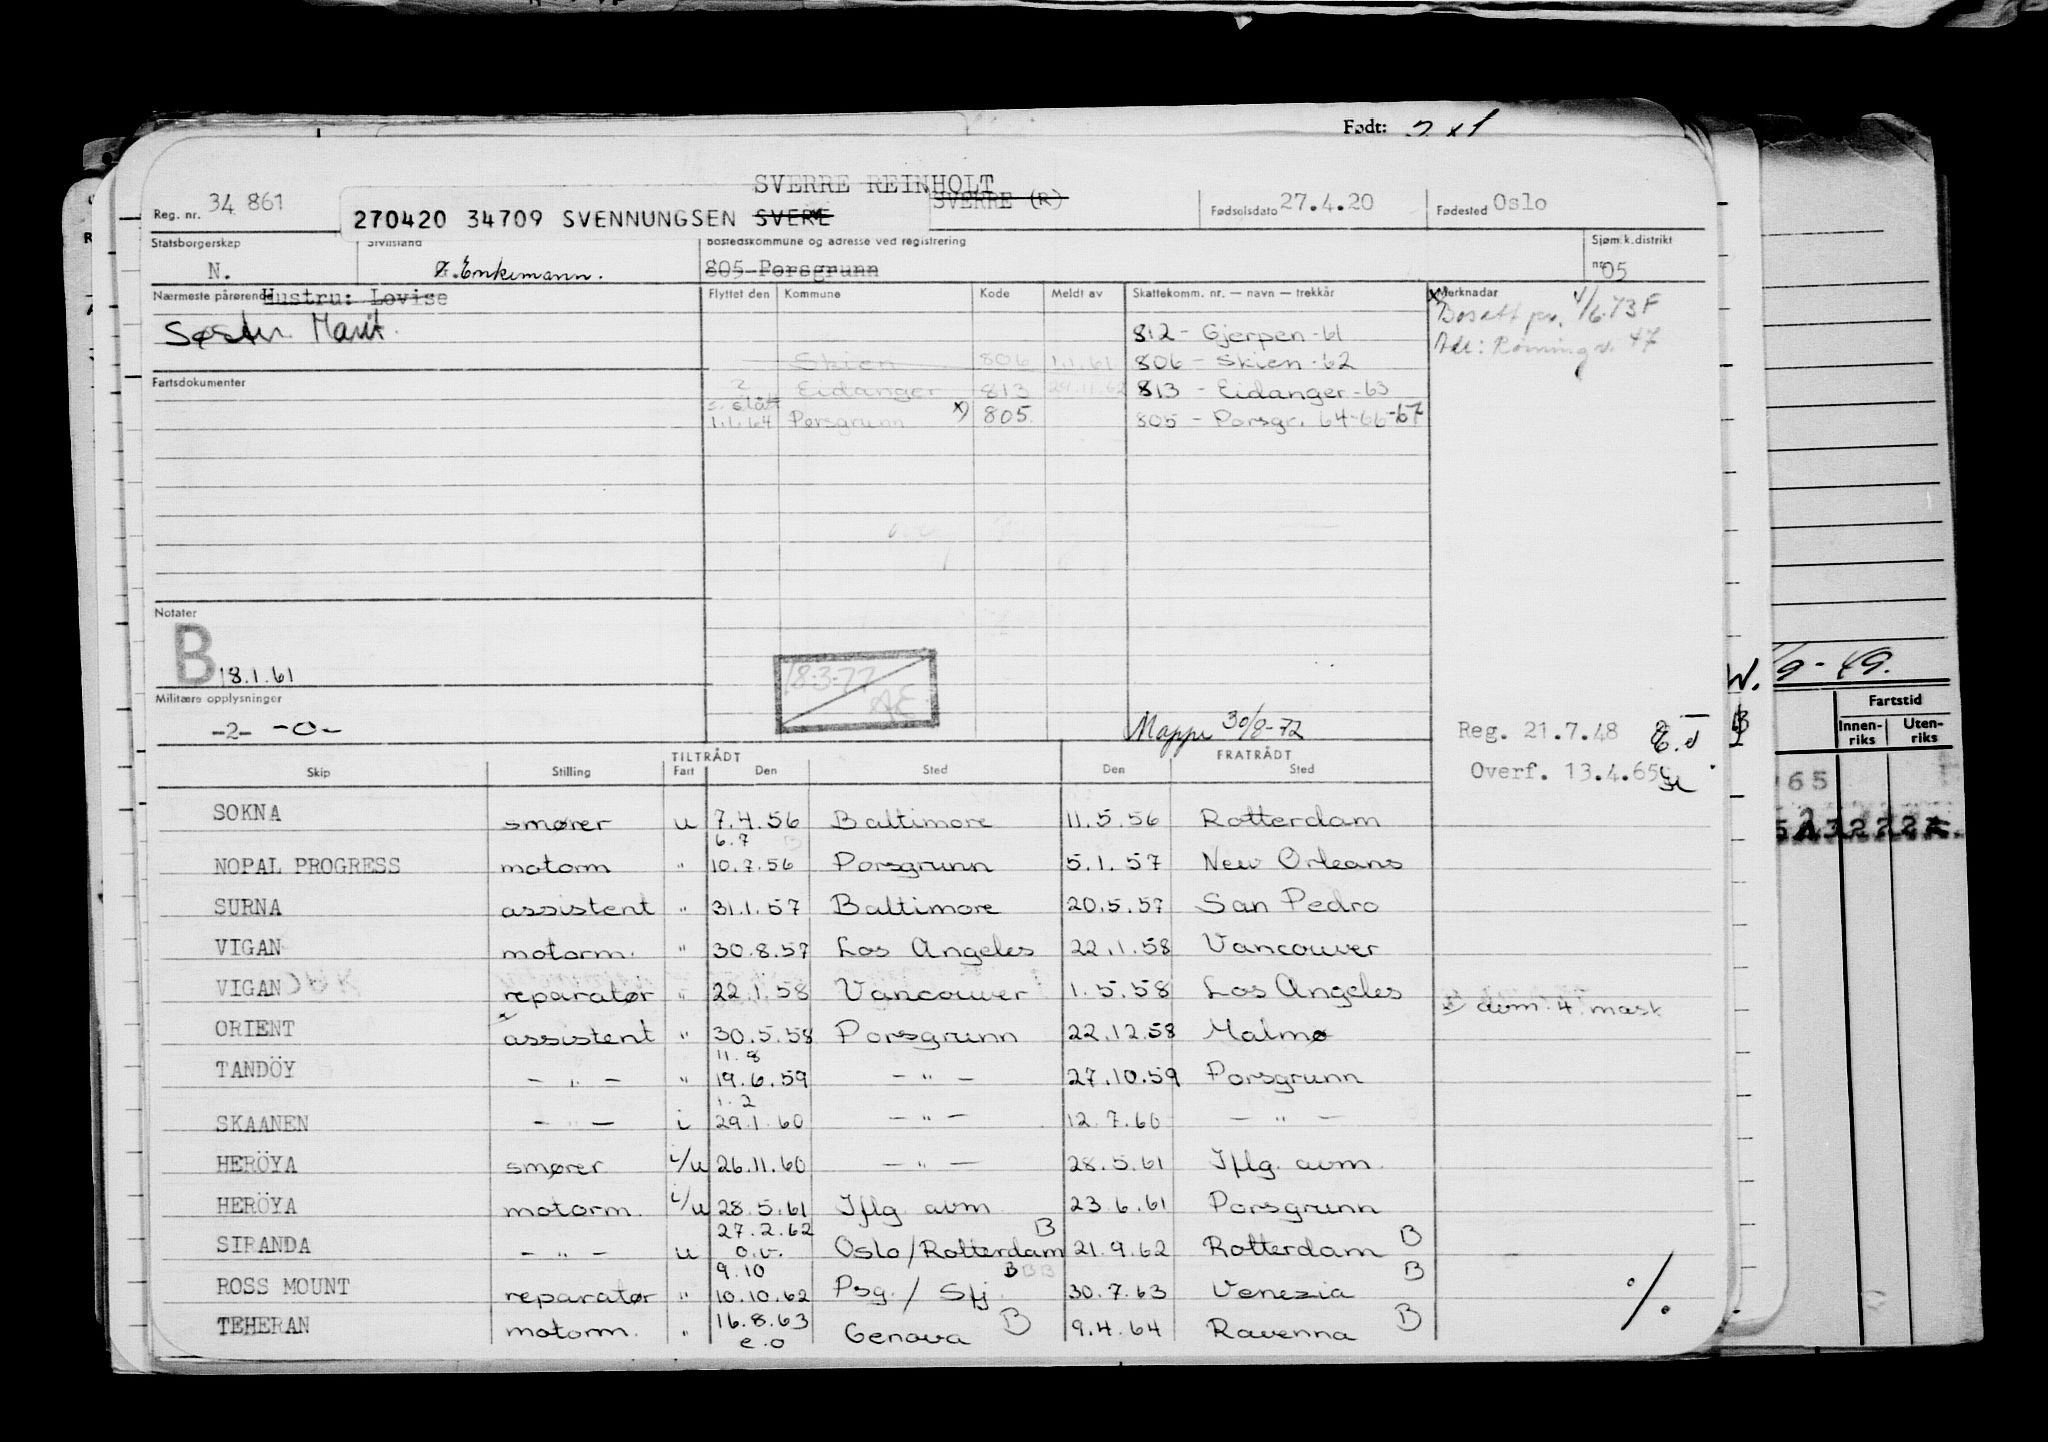 Født:
SVERRE REINHOLT
Reg. nr. 34 861
270420 34709 SVENNUNGSEN SVERE
SVERRE (R)
Fødselsdato 27.4.20
Fødested Oslo
Statsborgerskap
Sivilstand
Bostedskommune og adresse ved registrering
Sjøm.k.distrikt
N.
Enkemann.
805 Porsgrunn
nr. 05
Nærmeste pårørende Hustru: Lovise
Flyttet den Kommune Kode Meldt av Skattekomm. nr. — navn — trekkår
Merknadar
Søster Marit.
x) Bosatt pr. 4/6.73 F
812 - Gjerpen - 61
Adr: Rømningv. 47
Skien 806 1.1.61 806 - Skien - 62
Fartsdokumenter
? Eidanger 813 29.11.62 813 - Eidanger - 63
s. slått
1.1.64 Porsgrunn x) 805 805 - Porsgr. 64-66-67
Notater
B 18.1.61
Militære opplysninger
18-3-77
AE
-2- -0-
Mappe 30/8-72
Reg. 21.7.48
Overf. 13.4.65
TILTRÅDT FRATRÅDT
Skip Stilling Fart Den Sted Den Sted
SOKNA smører u 7.4.56 Baltimore 11.5.56 Rotterdam
6.7
NOPAL PROGRESS motorm " 10.7.56 Porsgrunn 5.1.57 New Orleans
SURNA assistent " 31.1.57 Baltimore 20.5.57 San Pedro
VIGAN motorm. " 30.8.57 Los Angeles 22.1.58 Vancouver
VIGAN reparatør " 22.1.58 Vancouver 1.5.58 Los Angeles
x) avm. 4. mask
ORIENT x assistent " 30.5.58 Porsgrunn 22.12.58 Malmø
11.8
TANDÖY - " - " 19.6.59 - " - 27.10.59 Porsgrunn
1.2
SKAANEN - " - i 29.1.60 - " - 12.7.60 - " -
HERÖYA smører i/u 26.11.60 - " - 28.5.61 Iflg. avm.
HERÖYA motorm. i/u 28.5.61 Iflg avm 23.6.61 Porsgrunn
27.2.62 B B
SIRANDA - " - u o.v. Oslo/Rotterdam 21.9.62 Rotterdam
9.10 B B B B
ROSS MOUNT reparatør " 10.10.62 Psg. / Sfj. 30.7.63 Venezia
16.8.63
TEHERAN motorm. " e.o Genova B 9.4.64 Ravenna B
·/.
W. 9-49.
Fartstid
Innen-riks Uten-riks
65